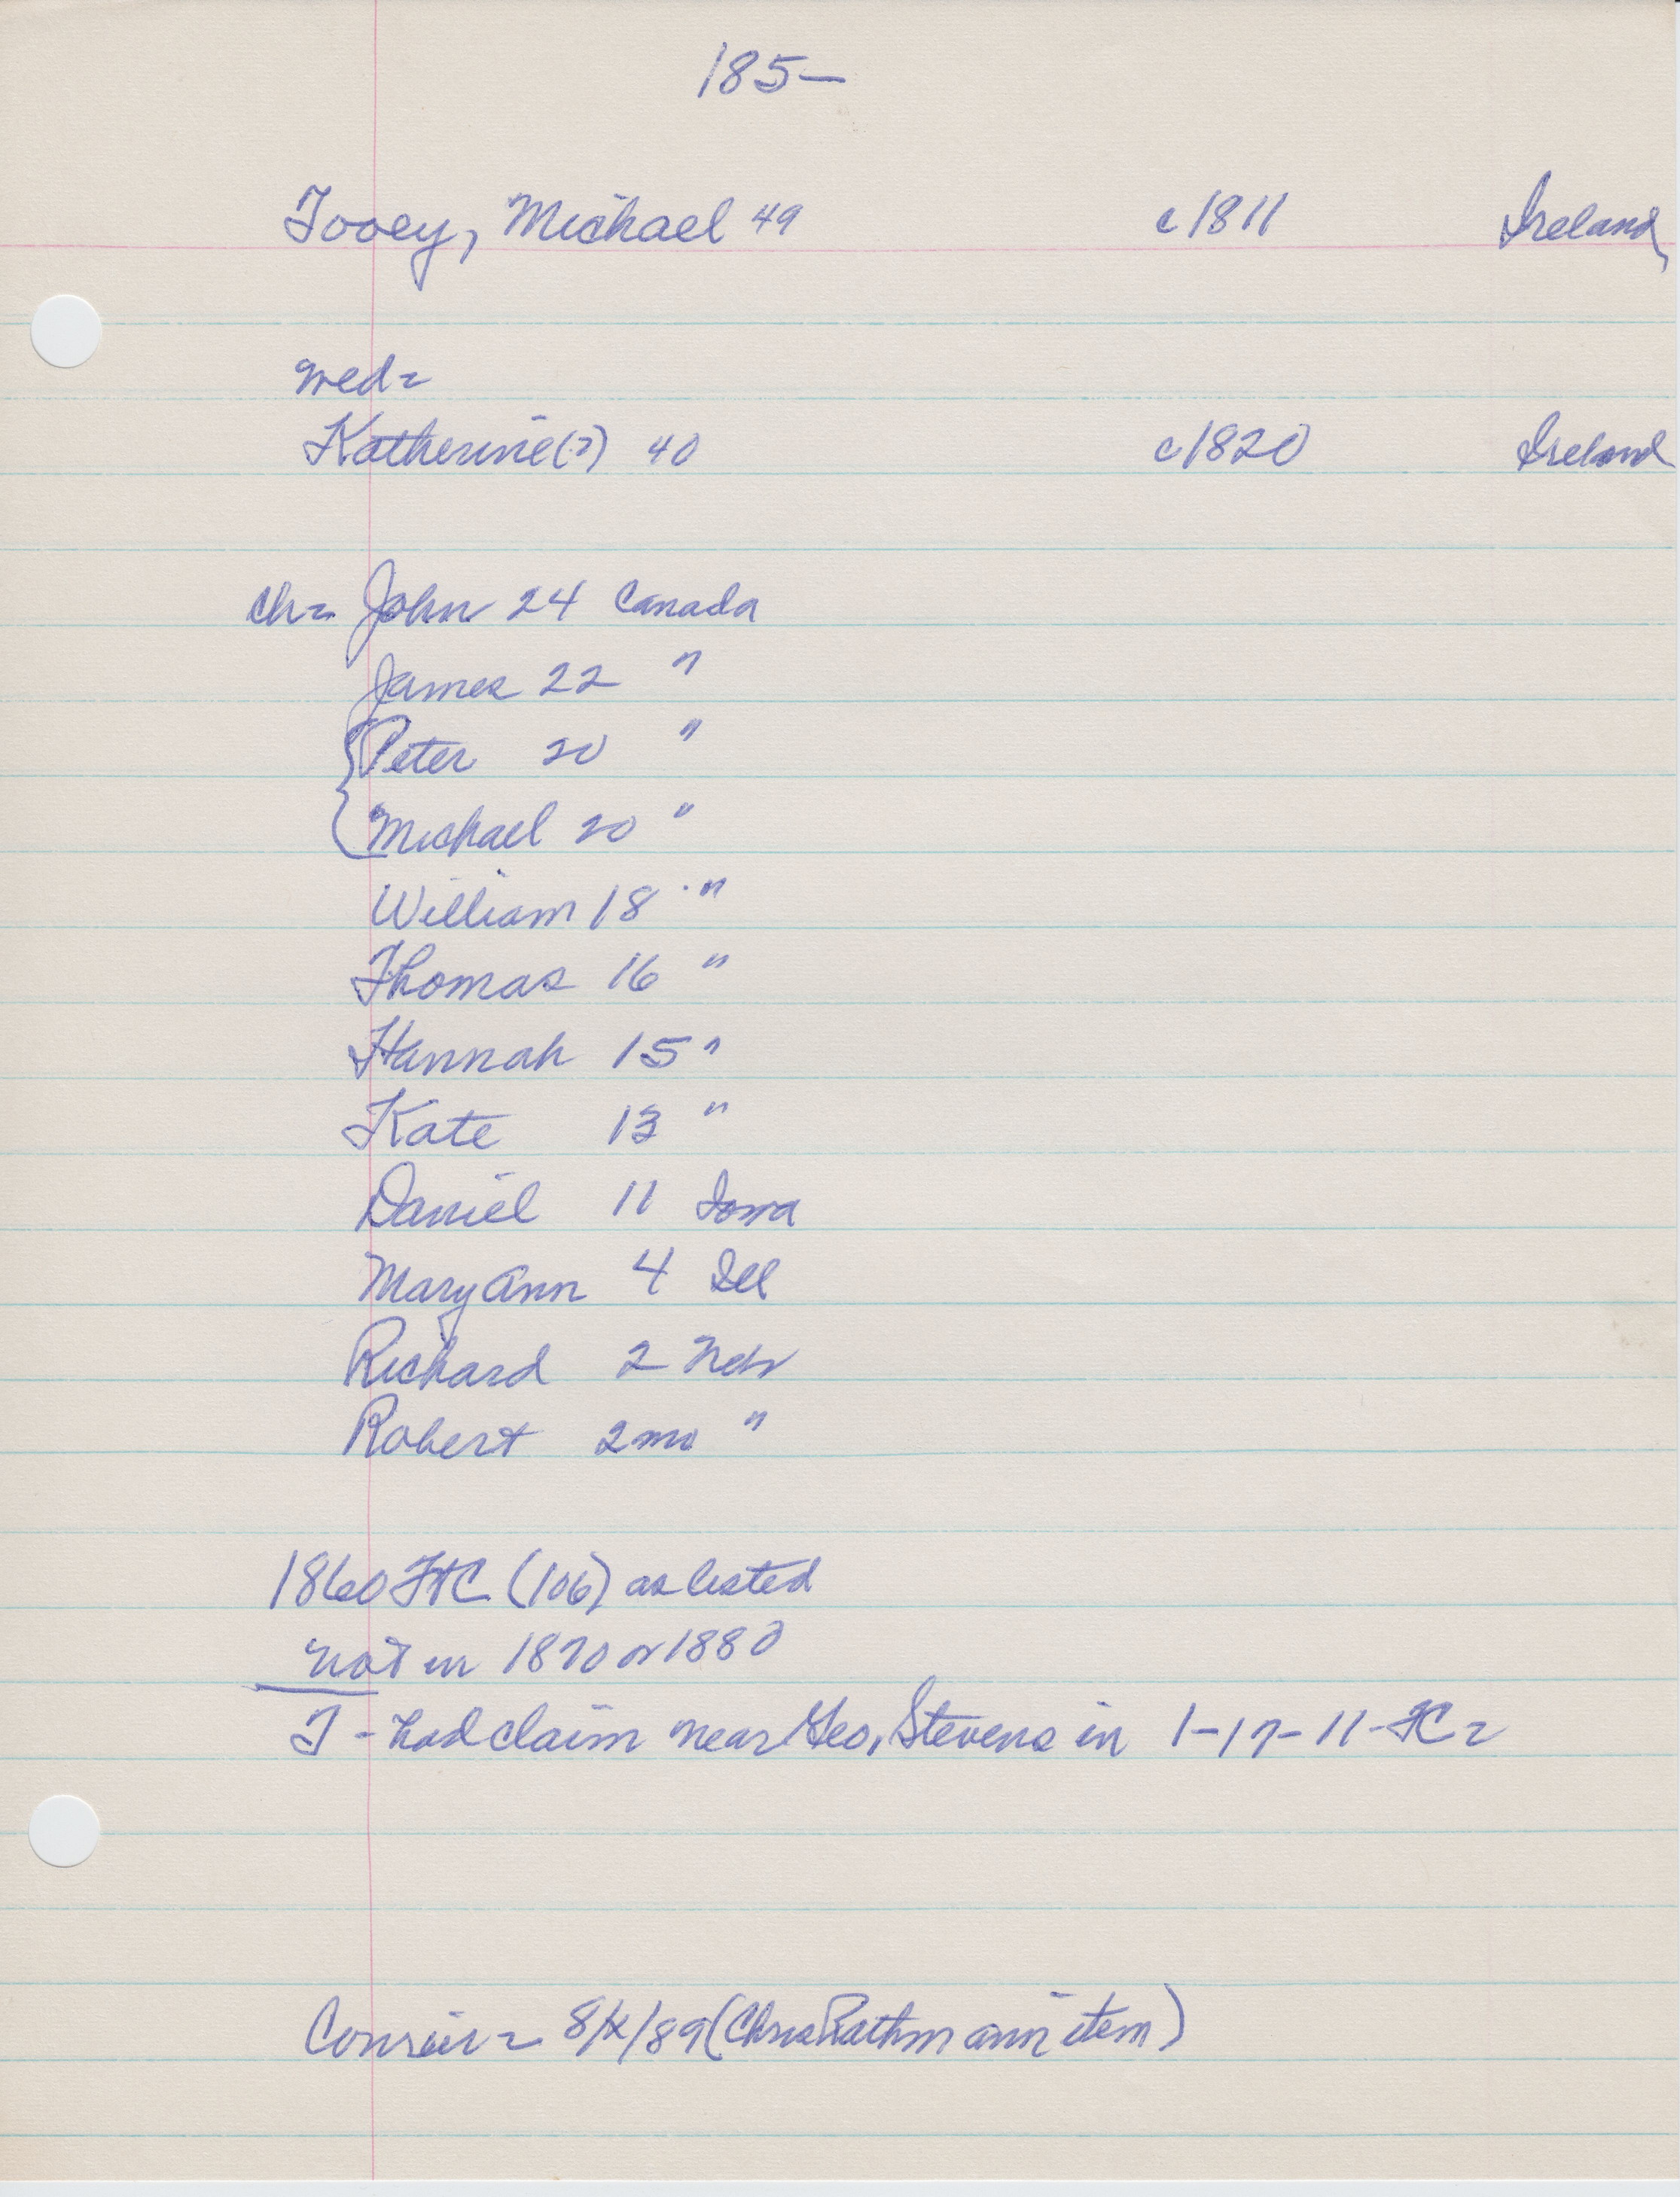 185—
Tooey, Michael 49 c1811 Ireland,
wed=
Katherine(?) 40 c1820 Ireland
ch= John 24 Canada
James 22 "
{ Peter 20 "
Michael 20 "
William 18 "
Thomas 16 "
Hannah 15 "
Kate 13 "
Daniel 11 Iowa
Mary Ann 4 Ill
Richard 2 Neb
Robert 2mo "
1860 FtC (106) as listed
not in 1870 or 1880
T - had claim near Geo. Stevens in 1-17-11-FC=
Courier= 8/x/89 (Chris Rathmann item)